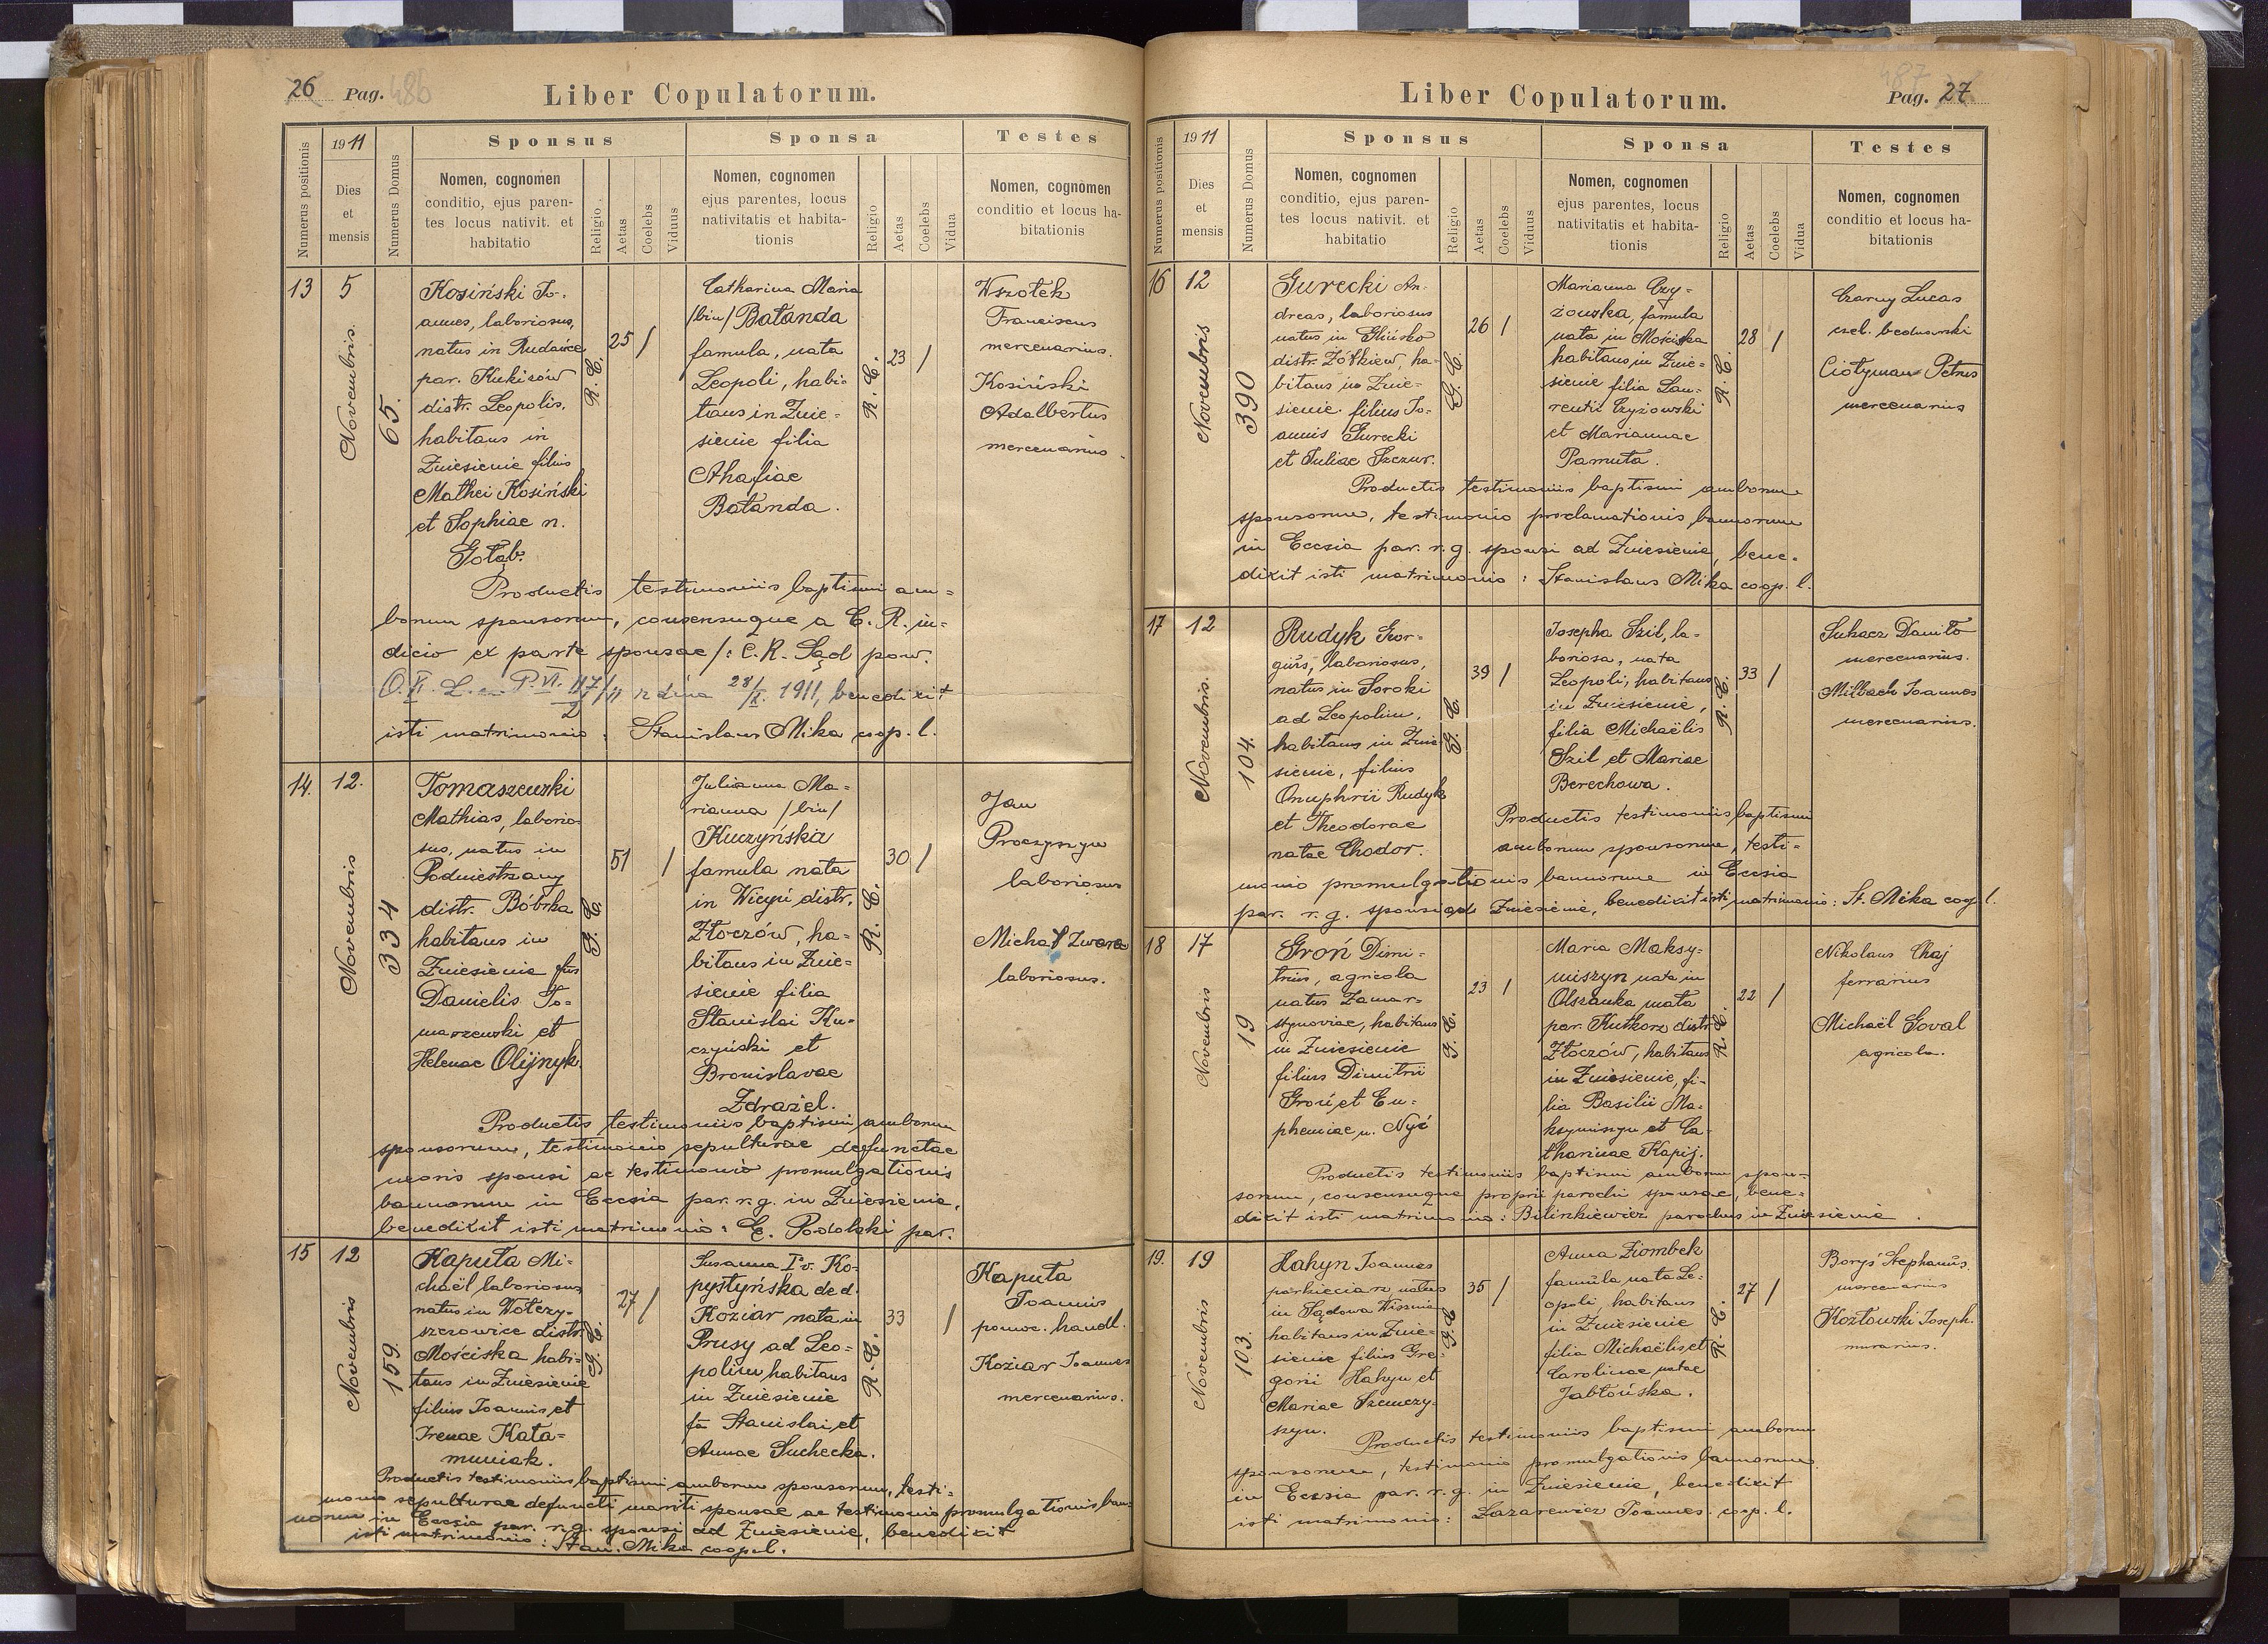 26 Pag. 486
Liber Copulatorum.
Numerus positionis
1911
Dies
et
mensis
Numerus Domus
Sponsus
Nomen, cognomen
conditio, ejus paren-
tes locus nativit. et
habitatio
Religio
Aetas
Coelebs
Viduus
Sponsa
Nomen, cognomen
ejus parentes, locus
nativitatis et habita-
tionis
Religio
Aetas
Coelebs
Vidua
Testes
Nomen, cognomen
conditio et locus ha-
bitationis
13
5
Novembris.
65.
Kosiński Jo-
annes, laboriosus,
natus in Rudańce
par. Kukizów
distr. Leopolis,
habitans in
Zniesienie filius
Mathei Kosiński
et Sophiae n.
Gołąb.
R. C.
25 /
Catharina Maria
/bin/ Bałanda
famula, nata
Leopoli, habi-
tans in Znie-
sienie filia
Ahafiae
Bałanda.
R. C.
23 /
Wszołek
Franciscus
mercenarius.
Kosiński
Adalbertus
mercenarius.
Productis testimoniis baptismi am-
borum sponsorum, consensuque a C. R. iu-
dicio ex parte sponsae /: C. K. Sąd pow.
1911, benedixit
isti matrimonio: Stanislaus Mika coop. l.
14.
12.
Novembris
334
Tomaszewski
Mathias, laborio-
sus, natus in
Podniestrzany
distr. Bóbrka
habitans in
Zniesienie fius
Danielis To-
maszewski et
Helenae Olijnyk.
G. C.
51 /
Julianna Ma-
rianna /bin/
Kuczyńska
famula nata
in Wicyń distr.
Złoczów, ha-
bitans in Znie-
sienie filia
Stanislai Ku-
czyński et
Bronislavae
Zdrażel.
R. C.
30 /
Jan
Proczyszyn
laboriosus
Michał Zwara
laboriosus.
Productis testimoniis baptismi amborum
sponsorum, testimonio sepulturae defunctae
uxoris sponsi ac testimonio promulgationis
bannorum in Eccsia par. r. g. in Zniesienie,
benedixit isti matrimonio: E. Podolski par.
15
12
Novembris
159.
Kaputa Mi-
chaël laboriosus
natus in Wołczy-
szczowice distr.
Mościska habi-
tans in Zniesienie
filius Joannis et
Irenae Kata-
muniak.
G. C.
27 /
Susanna I° v. Ko-
pystyńska de d.
Koziar nata in
Prusy ad Leo-
polim habitans
in Zniesienie
fa Stanislai et
Annae Suchecka.
R. C.
33 /
Kaputa
Joannis
pomoc. handl.
Koziar Joannes
mercenarius.
Productis testimoniis baptismi amborum sponsorum, testi-
monio sepulturae defuncti mariti sponsae ac testimonio promulgationis ban-
norum in Eccsia par. r. g. sponsi ad Zniesienie, benedixit
isti matrimonio: Stan. Mika coop. l.
487
Liber Copulatorum.
Pag. 27
Numerus positionis
1911
Dies
et
mensis
Numerus Domus
Sponsus
Nomen, cognomen
conditio, ejus paren-
tes locus nativit. et
habitatio
Religio
Aetas
Coelebs
Viduus
Sponsa
Nomen, cognomen
ejus parentes, locus
nativitatis et habita-
tionis
Religio
Aetas
Coelebs
Vidua
Testes
Nomen, cognomen
conditio et locus ha-
bitationis
16
12
Novembris
390
Gurecki An-
dreas, laboriosus
natus in Glińsko
distr. Żółkiew, ha-
bitans in Znie-
sienie filius Jo-
annis Gurecki
et Juliae Szczur.
G. C.
26 /
Marianna Czy-
żowska, famula
nata in Mościska
habitans in Znie-
sienie filia Lau-
rentii Czyżowski
et Mariannae
Pamuta.
R. C.
28 /
Czarny Lucas
czel. bednarski
Ciotyman Petrus
mercenarius
Productis testimoniis baptismi amborum
sponsorum, testimonio proclamationis bannorum
in Eccsia par. r. g. sponsi ad Zniesienie, bene-
dixit isti matrimonio: Stanislaus Mika coop. l.
17
12
Novembris.
104.
Rudyk Geor-
gius, laboriosus,
natus in Soroki
ad Leopolim,
habitans in Znie-
sienie, filius
Onuphrii Rudyk
et Theodorae
natae Chodor.
G. C.
39 /
Josepha Szil, la-
boriosa, nata
Leopoli, habitans
in Zniesienie,
filia Michaëlis
Szil et Mariae
Berechowa.
R. C.
33 /
Sukacz Daniło
mercenarius.
Milbach Joannes
mercenarius.
Productis testimoniis baptismi
amborum sponsorum, testi-
monio promulgationis bannorum in Eccsia
par. r. g. sponsi ad Zniesienie, benedixit isti matrimonio: St. Mika coop. l.
18
17
Novembris
19
Groń Dimi-
trius, agricola
natus Zamar-
stynoviae, habitans
in Zniesienie
filius Dimitrii
Groń et Eu-
phemiae n. Nyć
G. C.
23 /
Maria Maksy-
miszyn nata in
Olszanka mała
par. Kutkorz distr.
Złoczów, habitans
in Zniesienie, fi-
lia Basilii Ma-
ksymiszyn et Ca-
tharinae Kapij.
R. C.
22 /
Nikolaus Chaj
ferrarius
Michaël Goval
agricola.
Productis testimoniis baptismi amborum spon-
sorum, consensuque proprii parochi sponsae, bene-
dixit isti matrimonio: Bilinkiewicz parochus in Zniesienie.
19.
19
Novembris
103.
Hakyn Joannes
natus
in Sądowa Wisznia
habitans in Znie-
sienie filius Gre-
gorii Hakyn et
Mariae Szemczy-
szyn.
G. C.
35 /
Anna Ziombek
famula nata Le-
opoli, habitans
in Zniesienie
filia Michaëlis et
Carolinae natae
Jabłońska.
R. C.
27 /
Boryś Stephanus.
mercenarius
Kozłowski Joseph.
murarius.
Productis testimoniis baptismi amborum
sponsorum, testimonio promulgationis bannorum
in Eccsia par. r. g. in Zniesienie, benedixit
isti matrimonio: Lazarewicz Joannes coop. l.